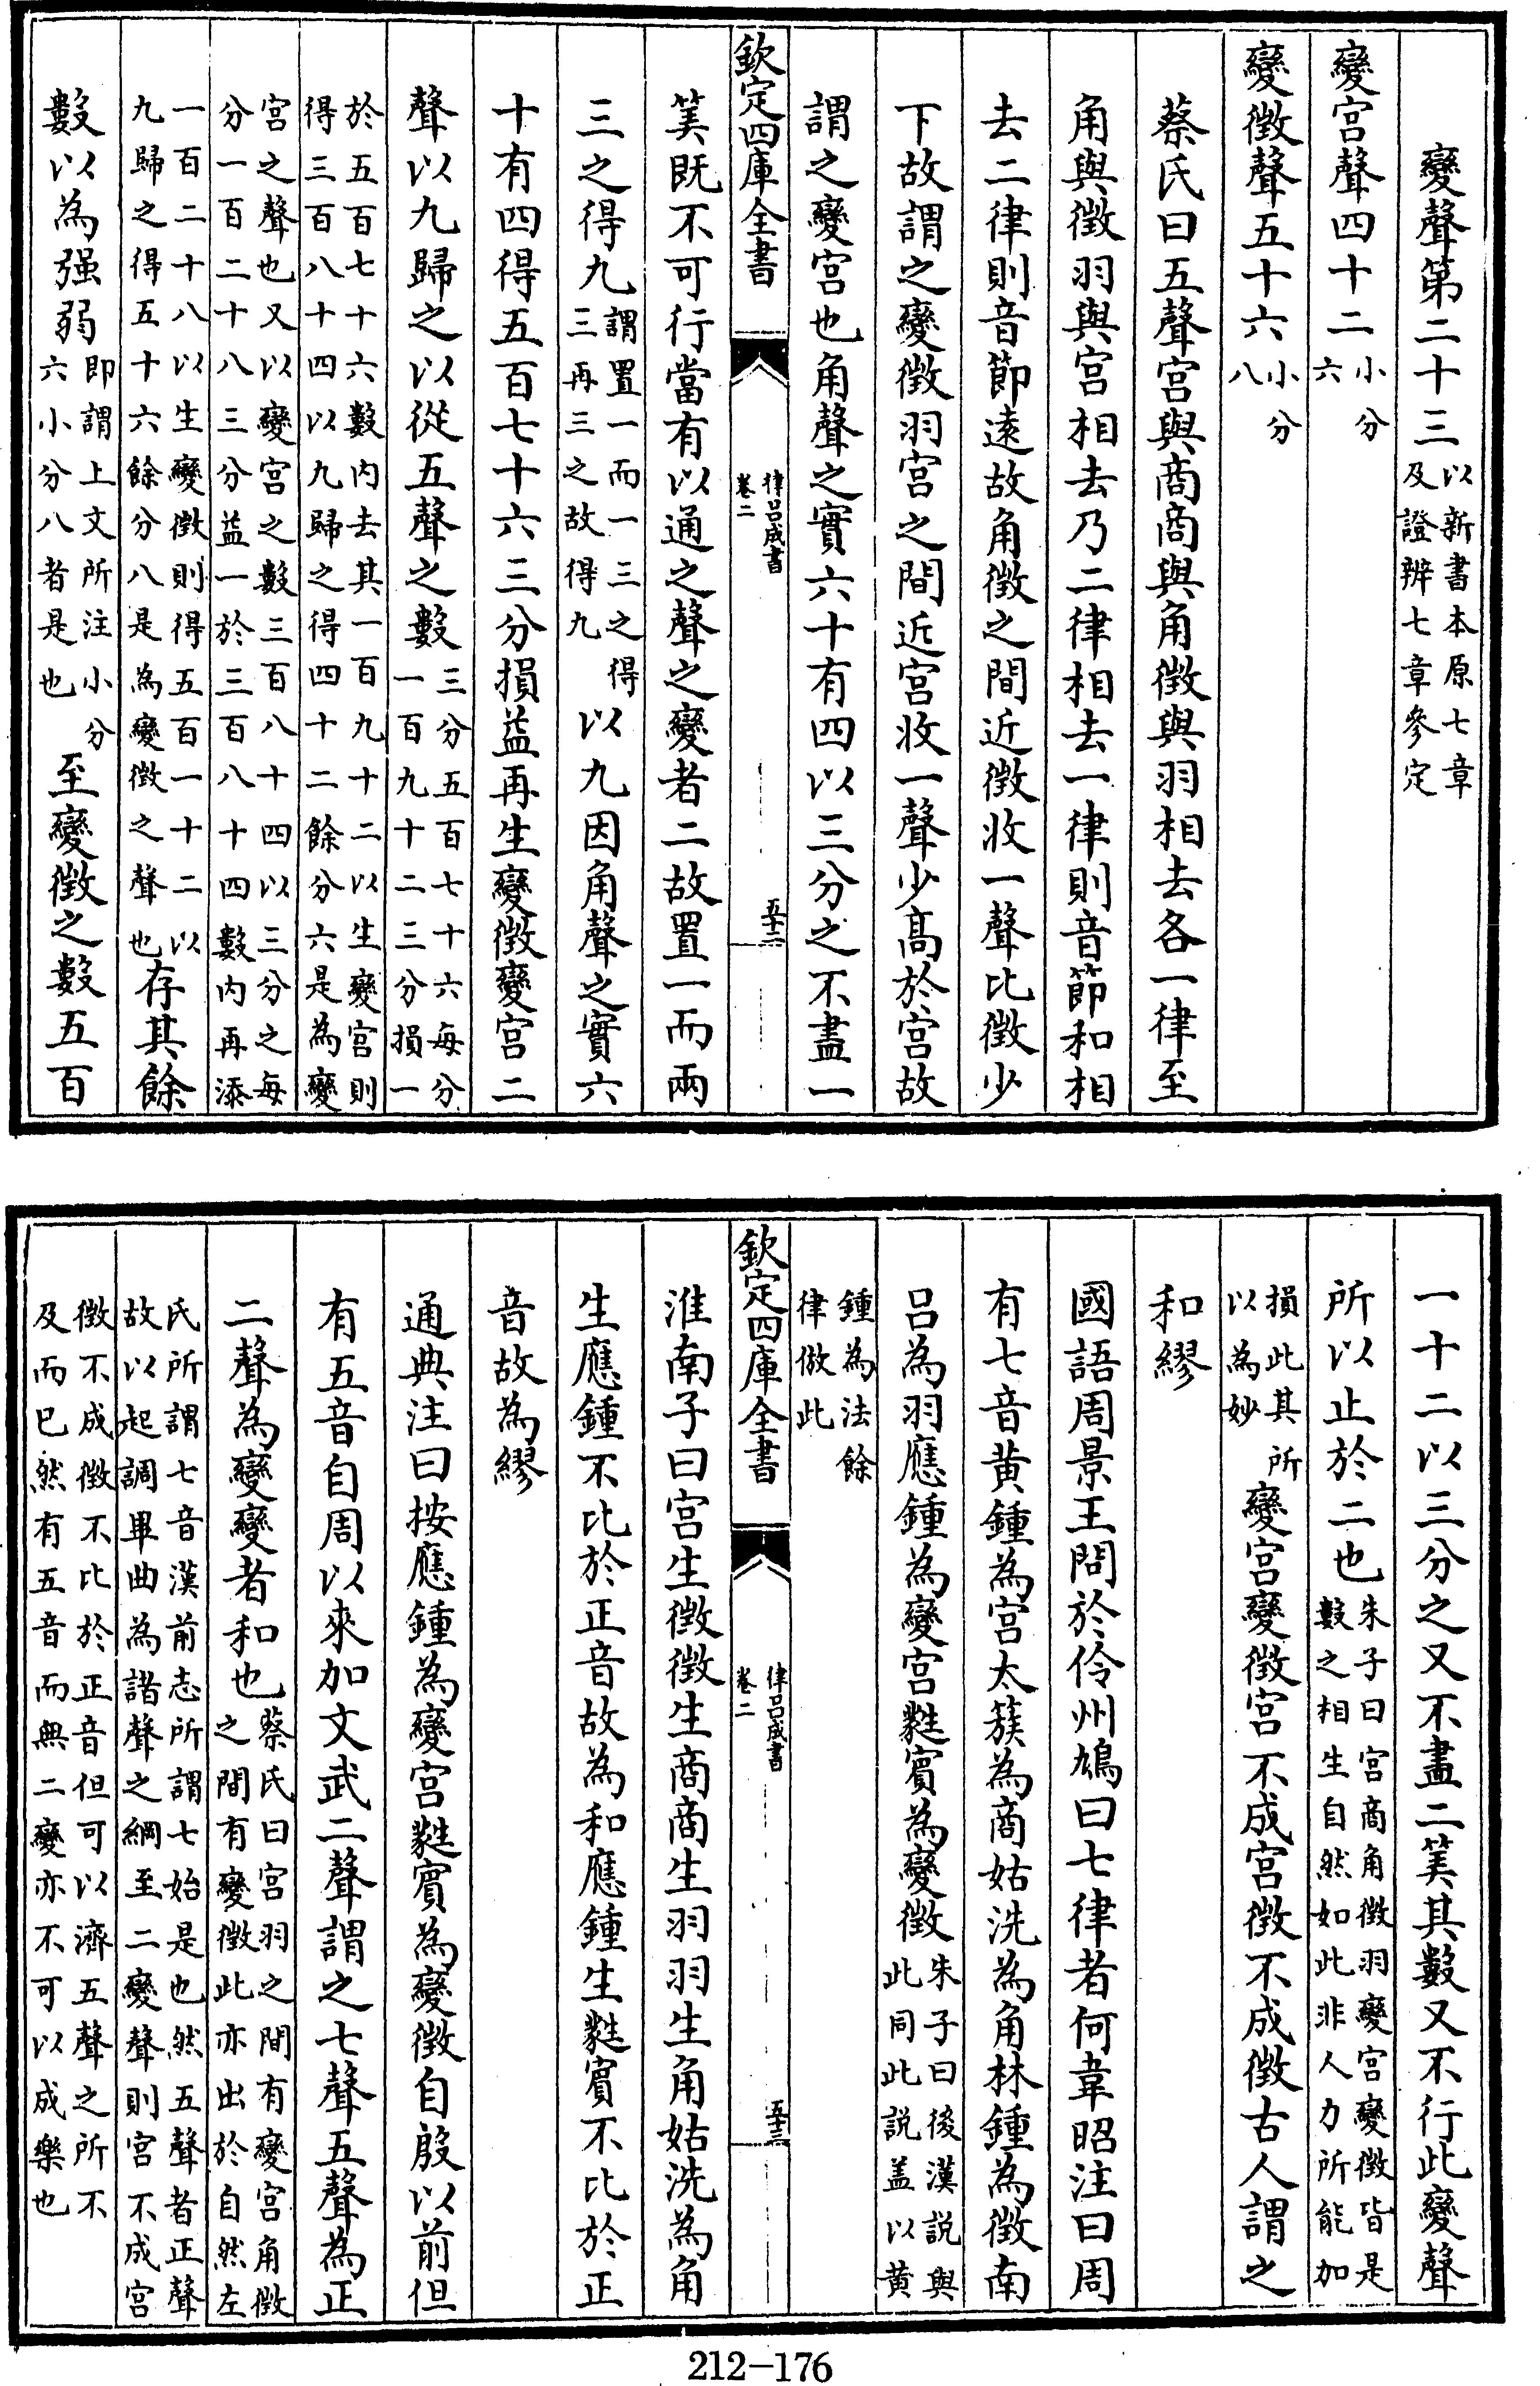 變聲第二十三以新書本原七章及證辨七章參定
變宮聲四十二小分六
變徴聲五十六小分八
蔡氏曰五聲宮與商商與角徴與羽相去各一律至
角與徴羽與宮相去乃二律相去一律則音節和相
去二律則音節逺故角徴之間近徴收一聲比徴少
下故謂之變徴羽宮之間近宮收一聲少髙於宮故
謂之變宮也角聲之實六十有四以三分之不盡一
欽定四庫全書
律呂成書
卷二
五十二
筭既不可行當有以通之聲之變者二故置一而兩
三之得九謂置一而一三之得三再三之故得九以九因角聲之實六
十有四得五百七十六三分損益再生變徴變宮二
聲以九歸之以從五聲之數三分五百七十六每分一百九十二三分損一
於五百七十六數内去其一百九十二以生變宮則得三百八十四以九歸之得四十二餘分六是為變
宮之聲也又以變宮之數三百八十四以三分之每分一百二十八三分益一於三百八十四數内再添
一百二十八以生變徴則得五百一十二以九歸之得五十六餘分八是為變徴之聲也存其餘
數以為强弱即謂上文所注小分六小分八者是也至變徴之數五百
一十二以三分之又不盡二筭其數又不行此變聲
所以止於二也朱子曰宮商角徴羽變宮變徴皆是數之相生自然如此非人力所能加
損此其所以為妙變宮變徴宮不成宮徴不成徴古人謂之
和繆
國語周景王問於伶州鳩曰七律者何韋昭注曰周
有七音黄鍾為宮太簇為商姑洗為角林鍾為徴南
呂為羽應鍾為變宮蕤賓為變徴朱子曰後漢説與此同此説盖以黄
鍾為法餘律倣此
欽定四庫全書
律呂成書
卷二
五十三
淮南子曰宮生徴徴生商商生羽羽生角姑洗為角
生應鍾不比於正音故為和應鍾生蕤賓不比於正
音故為繆
通典注曰按應鍾為變宮蕤賓為變徴自殷以前但
有五音自周以來加文武二聲謂之七聲五聲為正
二聲為變變者和也蔡氏曰宮羽之間有變宮角徴之間有變徴此亦出於自然左
氏所謂七音漢前志所謂七始是也然五聲者正聲故以起調畢曲為諧聲之綱至二變聲則宮不成宮
徴不成徴不比於正音但可以濟五聲之所不及而已然有五音而無二變亦不可以成樂也
212-176